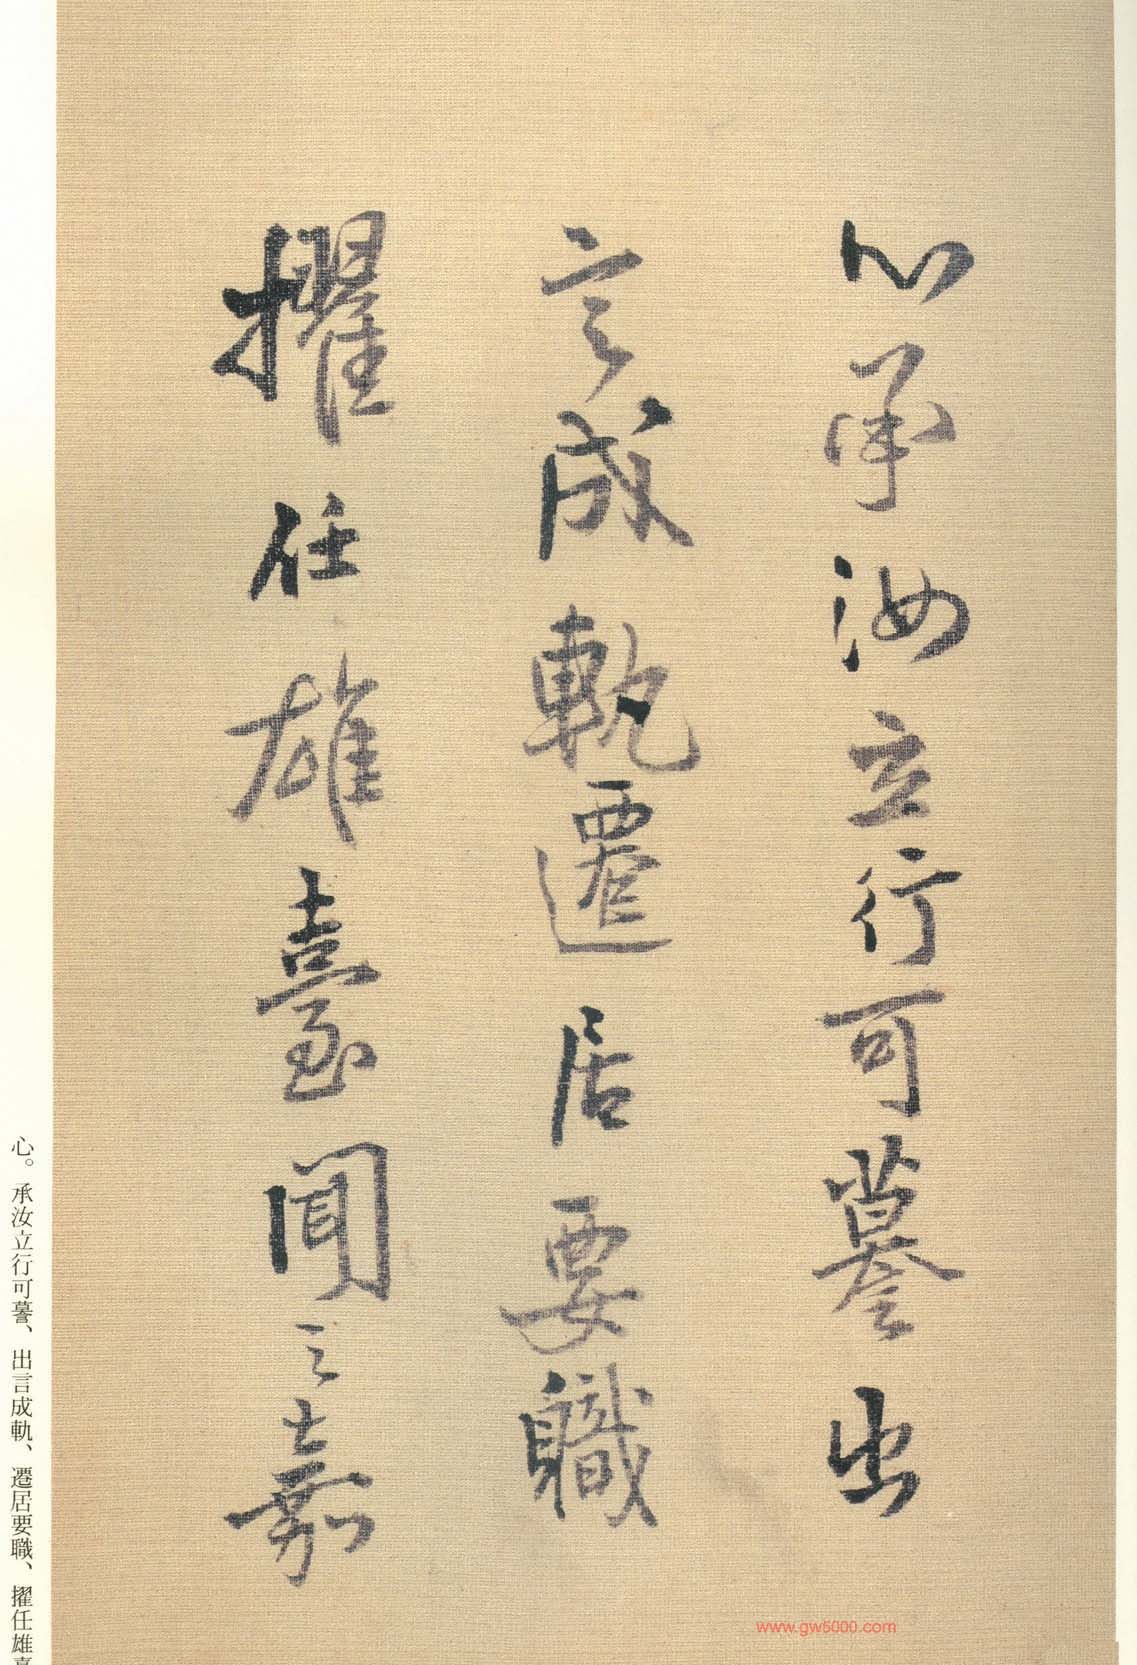 心承汝立行可謩出
言成軌遷居要職
擢任雄臺聞之嘉
心。承汝立行可謩、出言成軌、遷居要職、擢任雄臺
www.gw5000.com